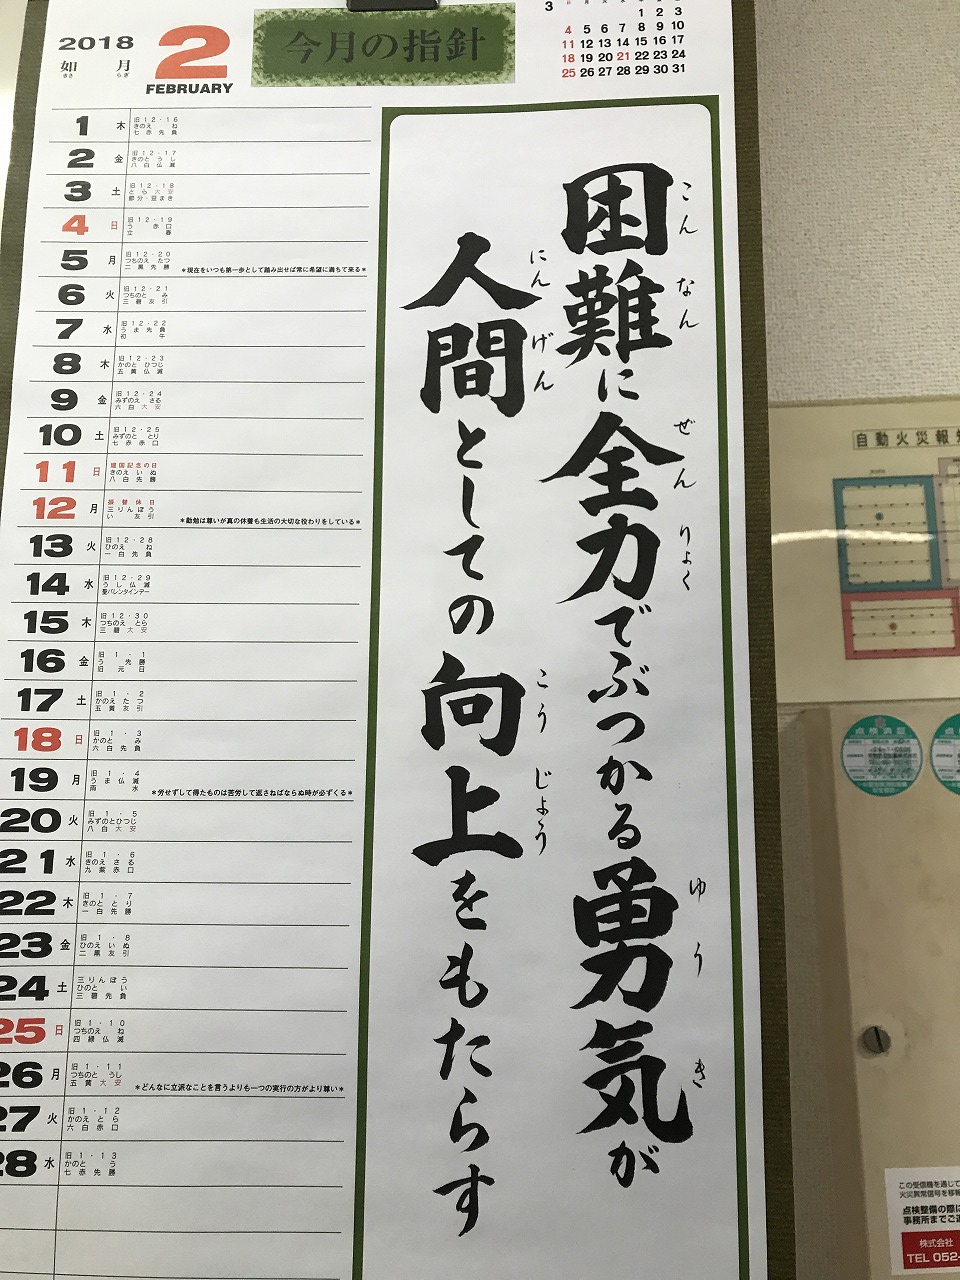 2018
如月
きさらぎ
2
FEBRUARY
今月の指針
3
1 2 3
4 5 6 7 8 9 10
11 12 13 14 15 16 17
18 19 20 21 22 23 24
25 26 27 28 29 30 31
困難に全力でぶつかる勇気が
こんなん ぜんりょく ゆうき
人間としての向上をもたらす
にんげん こうじょう
1 木 旧12・16
きのえ ね
七赤先負
2 金 旧12・17
きのと うし
八白仏滅
3 土 旧12・18
とら 大安
節分・豆まき
4 日 旧12・19
う 赤口
立春
5 月 旧12・20
つちのえ たつ
二黒先勝
＊現在をいつも第一歩として踏み出せば常に希望に満ちて来る＊
6 火 旧12・21
つちのと み
三碧友引
7 水 旧12・22
うま先負
初午
8 木 旧12・23
かのと ひつじ
五黄仏滅
9 金 旧12・24
みずのえ さる
六白大安
10 土 旧12・25
みずのと とり
七赤赤口
11 日 建国記念の日
きのえ いぬ
八白先勝
12 月 振替休日
三りんぼう
い 友引
＊勤勉は尊いが真の休養も生活の大切な役わりをしている＊
13 火 旧12・28
ひのえ ね
一白先負
14 水 旧12・29
うし仏滅
聖バレンタインデー
15 木 旧12・30
つちのえ とら
三碧大安
16 金 旧1・1
う 先勝
旧元日
17 土 旧1・2
かのえ たつ
五黄友引
18 日 旧1・3
かのと み
六白先負
19 月 旧1・4
うま仏滅
雨水
＊労せずして得たものは苦労して返さねばならぬ時が必ずくる＊
20 火 旧1・5
みずのとひつじ
八白大安
21 水 旧1・6
きのえ さる
九紫赤口
22 木 旧1・7
きのと とり
一白先勝
23 金 旧1・8
ひのえ いぬ
二黒友引
24 土 三りんぼう
ひのと い
三碧先負
25 日 旧1・10
つちのえ ね
四緑仏滅
26 月 旧1・11
つちのと うし
五黄大安
＊どんなに立派なことを言うよりも一つの実行の方がより尊い＊
27 火 旧1・12
かのえ とら
六白赤口
28 水 旧1・13
かのと う
七赤先勝
自動火災報知
点検済証
点検
この受信機を通じて
火災異常信号を移報
点検整備の際に
事務所までご連
株式会社
TEL 052-